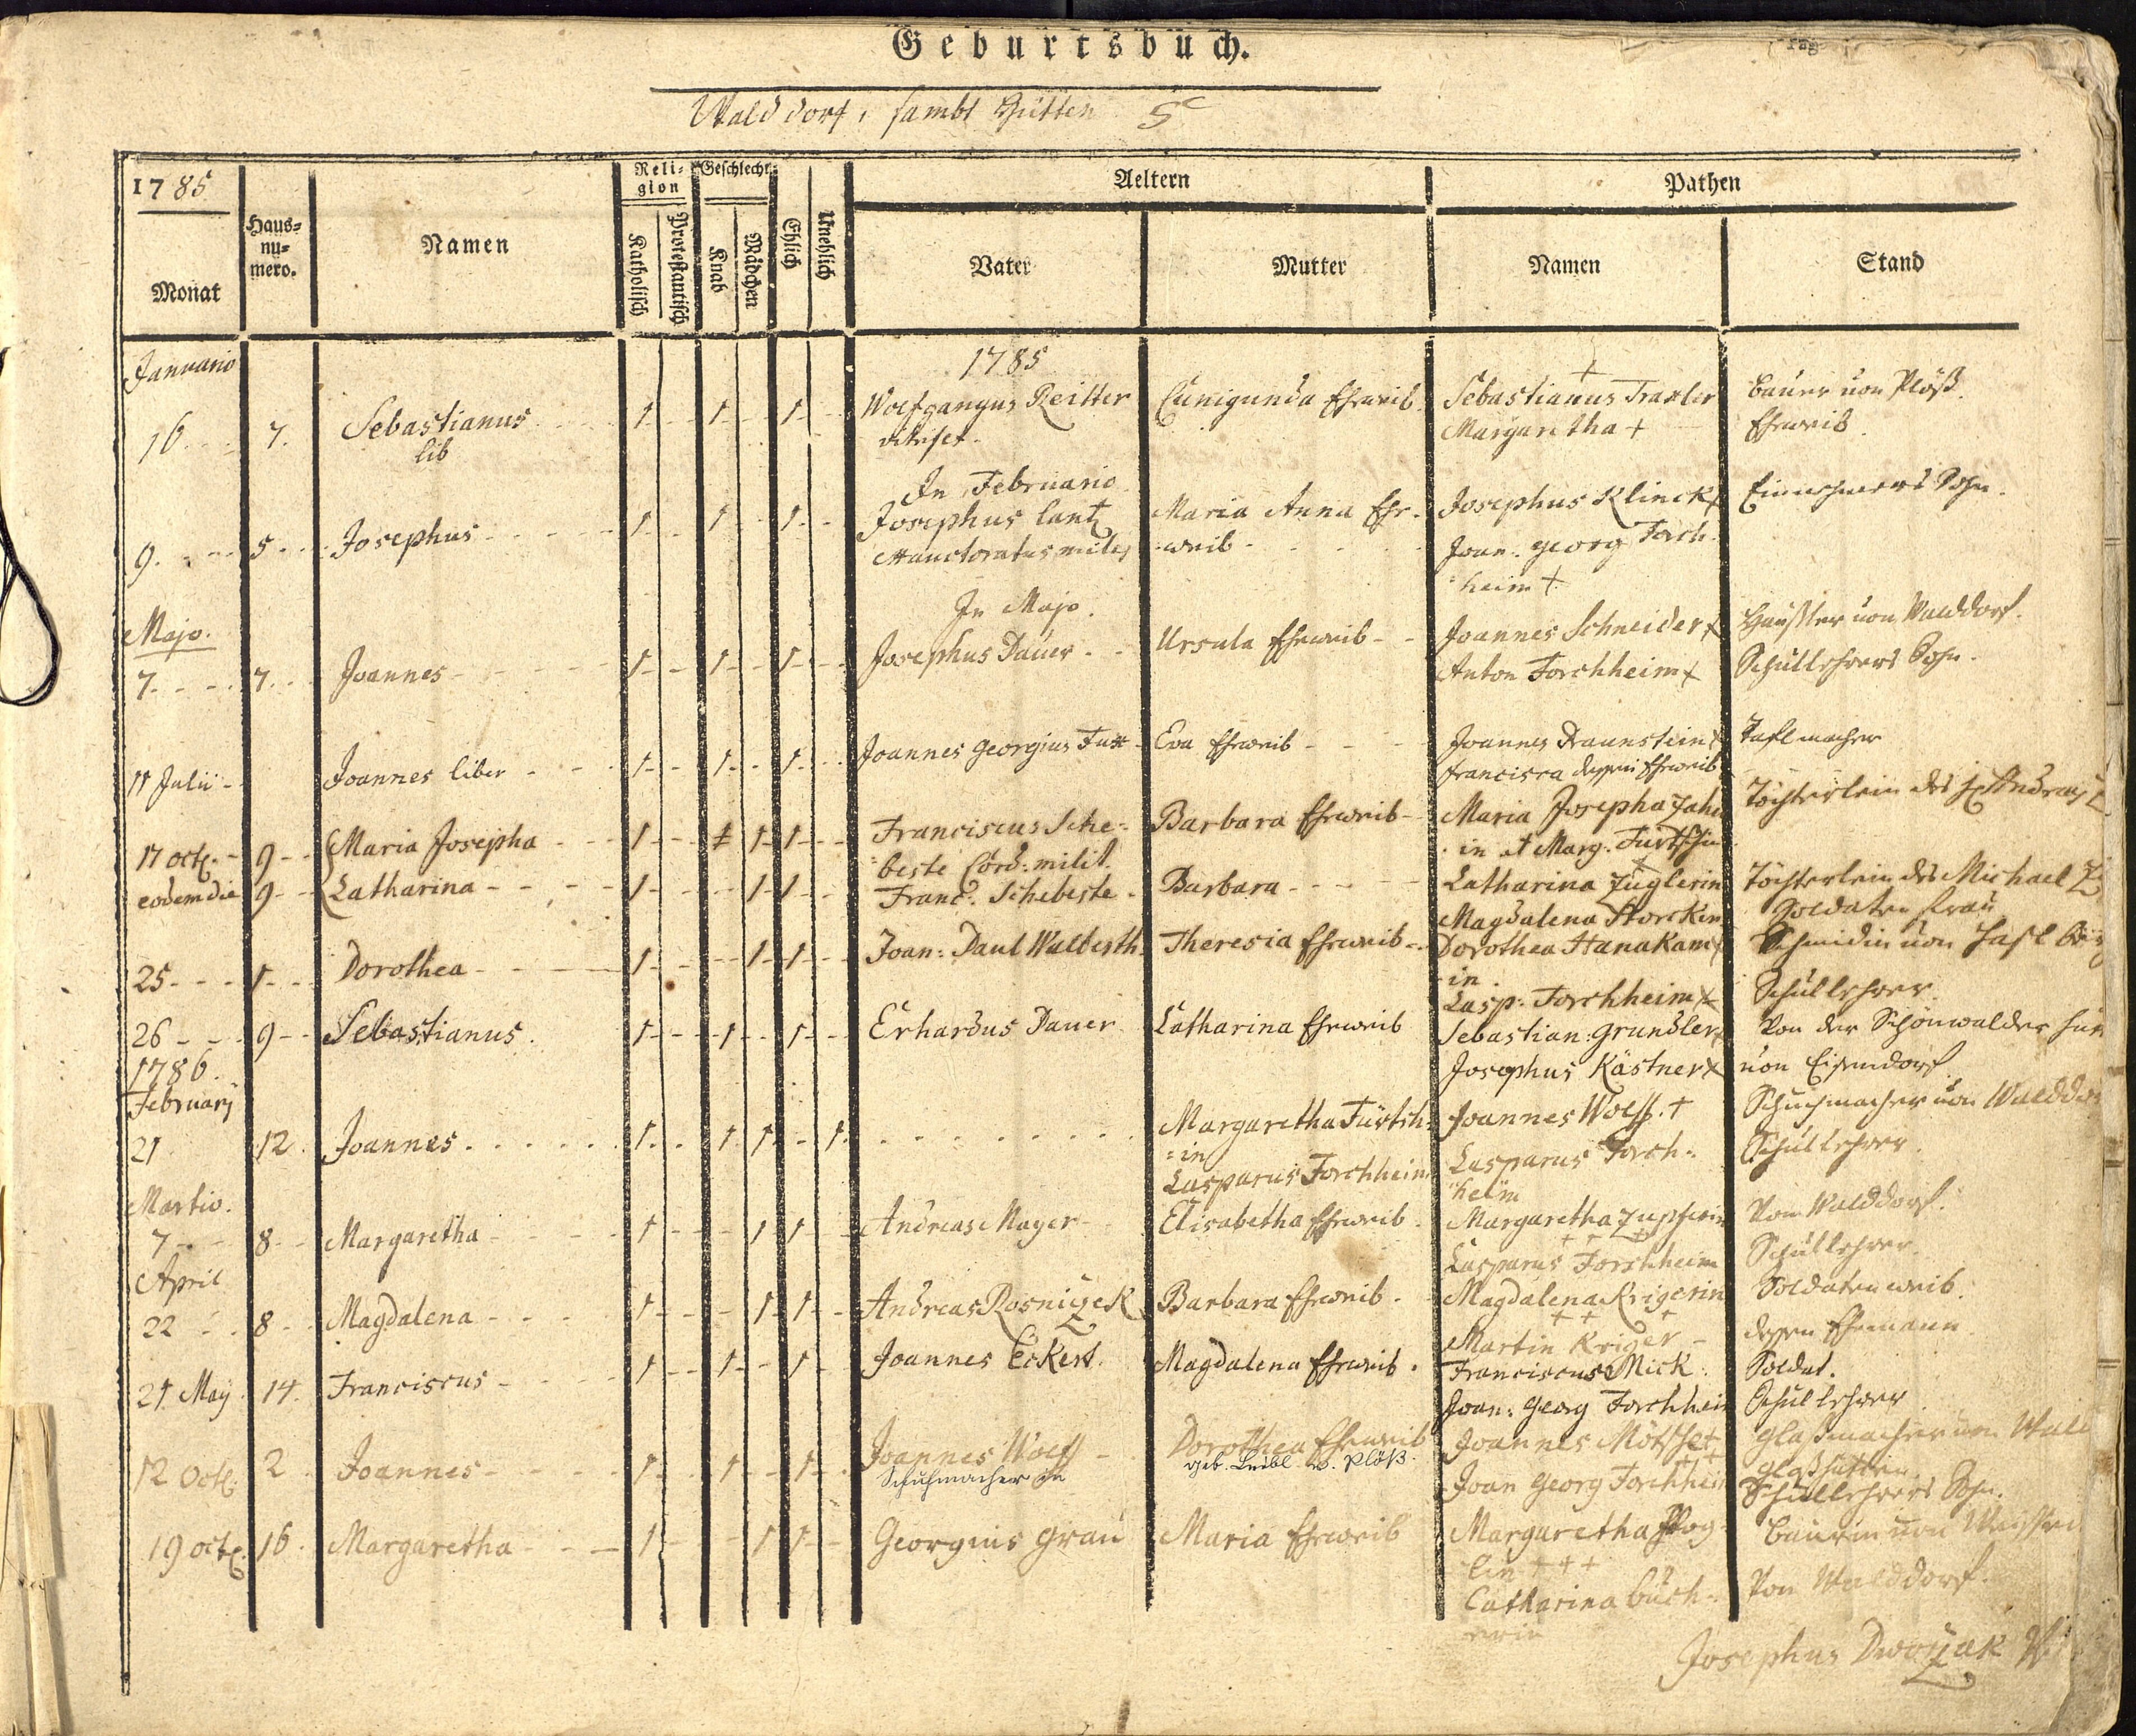 Geburtsbuch.
Walddorf, sambt Hütten 5
1785
Monat
Haus=
nu=
mero.
Namen
Reli=
gion
Katholisch
Protestantisch
Geschlecht
Knab
Mädchen
Ehlich
Unehlich
Aeltern
Vater
Mutter
Pathen
Namen
Stand
Januario
1785
16 7. Sebastianus 1 1 1 Wolfgangus Reitter Cunigunda Eheweib. Sebastianus Traxler Bauer von Plöß.
lib Margaretha + Eheweib
In Februario
9. 5 Josephus 1 1 1 Josephus lantz Maria Anna Ehe- Josephus Klinck Einnehmers Sohn.
miles weib Joan. georg Forch=
heim +
Majo.
In Majo.
7. 7. Joannes 1 1 1 Josephus Dauer Ursula Eheweib Joannes Schneider Häußler von Walddorf.
Anton Forchheim Schullehrers Sohn.
11 Julii Joannes liber 1 1 1 Joannes Georgius Fux Eva Eheweib Joannes Braunstein Taflmacher
Francisca dessen Eheweib
17 oct. 9 Maria Josepha 1 1 1 Franciscus Sche= Barbara Eheweib Maria Josepha Töchterlein des
beste Cord: milit. in et Marg.
eodem die 9 Catharina 1 1 1 Franc. Schebeste Barbara Catharina Zuglerin Töchterlein des Michael
Magdalena Storckin Soldaten Frau
25 1 Dorothea 1 1 1 Joan: Paul Theresia Eheweib Dorothea Hanakam Schmidin von
in
Casp: Forchheim Schullehrer
26 9 Sebastianus. 1 1 1 Erhardus Dauer Catharina Eheweib Sebastian: grundler Von der Schönwalder
Josephus Kästner von Eisendorf
1786.
Februarj
21 12 Joannes 1 1 1 1 Margaretha Joannes Wolff. + Schuhmacher von
=in
Casparus Forchheim Casparus Forch= Schullehrer.
heim
Martio.
7 8 Margaretha 1 1 1 Andreas Mayer Elisabetha Eheweib. Margaretha Von Walddorf.
Casparus Forchheim Schullehrer.
April
22 8 Magdalena 1 1 1 Andreas Rosniczek Barbara Eheweib. Magdalena Krigerin Soldatenweib.
Martin Kriger dessen Ehemann
21 Maij 14. Franciscus 1 1 1 Joannes Eckert. Magdalena Eheweib. Franciscus Mick. Soldat.
Joan: Georg Forchheim Schullehrer
12 Oct. 2 Joannes 1 1 1 Joannes Wolff Dorothea Eheweib Joannes Glaßmacher von
Schuhmacher in geb. Leibl v. Plöß. Glaßhütten
Joan Georg Forchheim Schullehrers Sohn.
19 oct. 16 Margaretha 1 1 1 Georgius Grau Maria Eheweib Margaretha Bäurin von
lin +++
Catharina Büch= Von Walddorf.
Josephus Dworzak